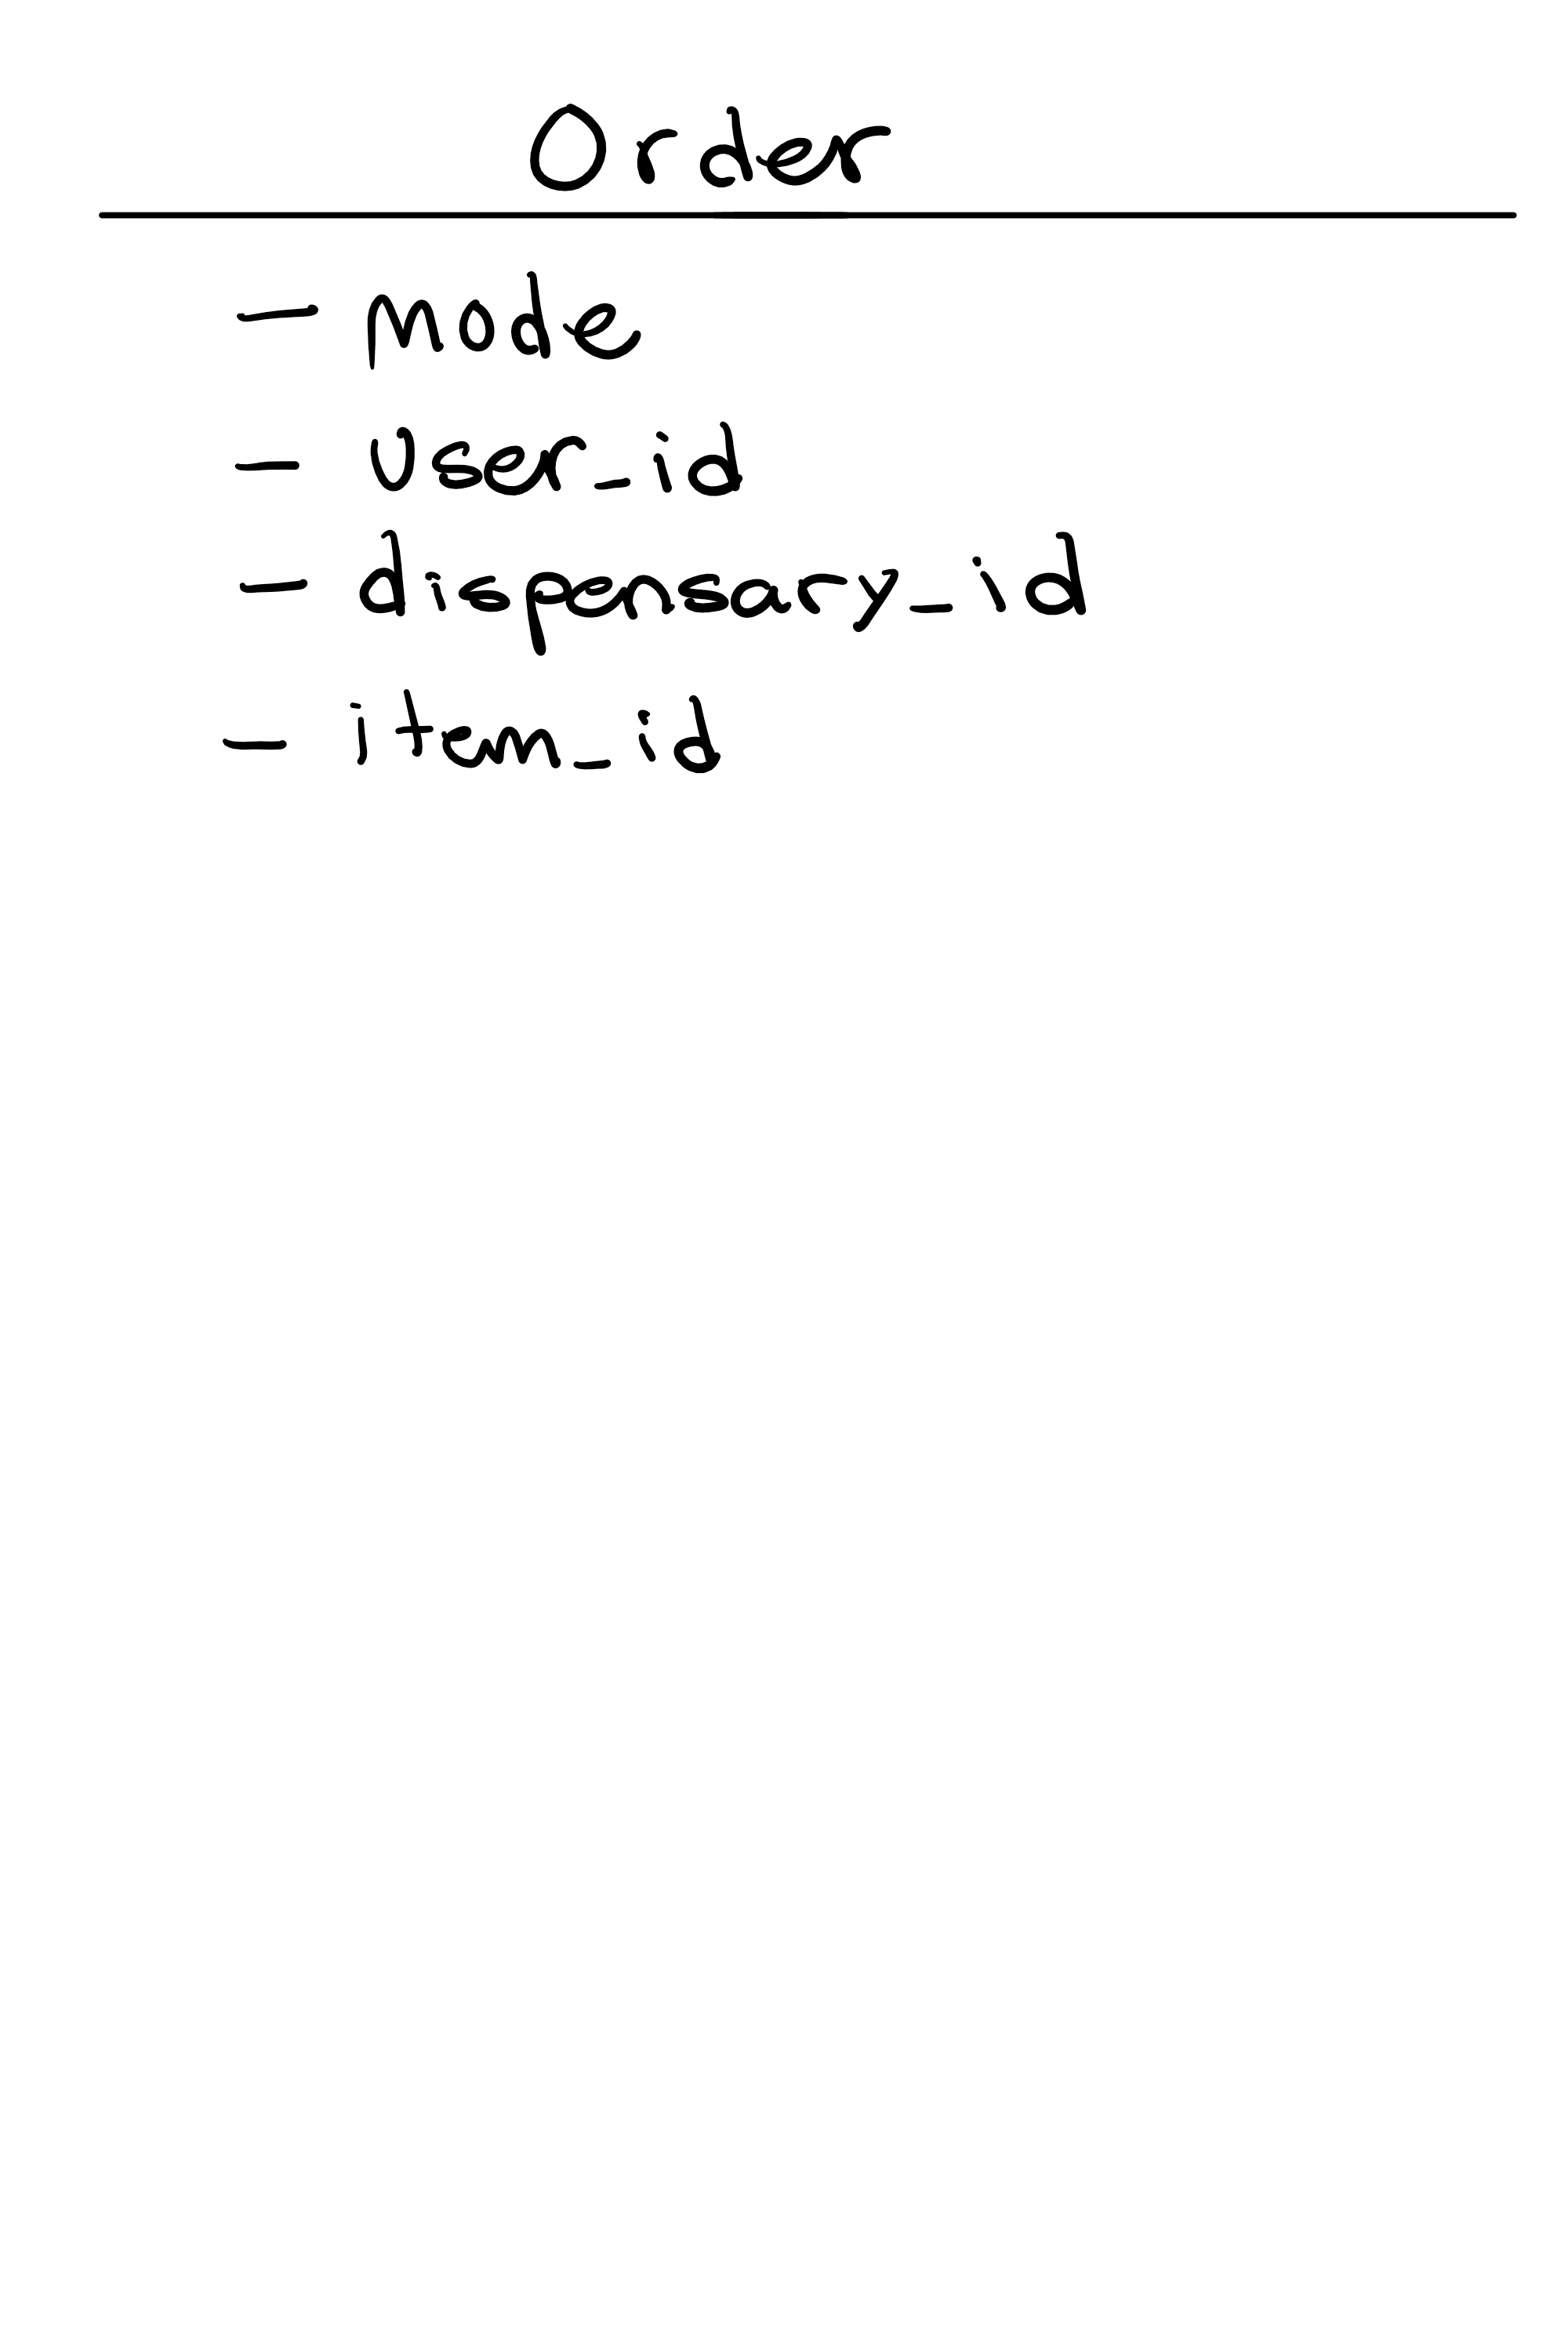 Order
- Mode
- User_id
- dispensary_id
- item_id